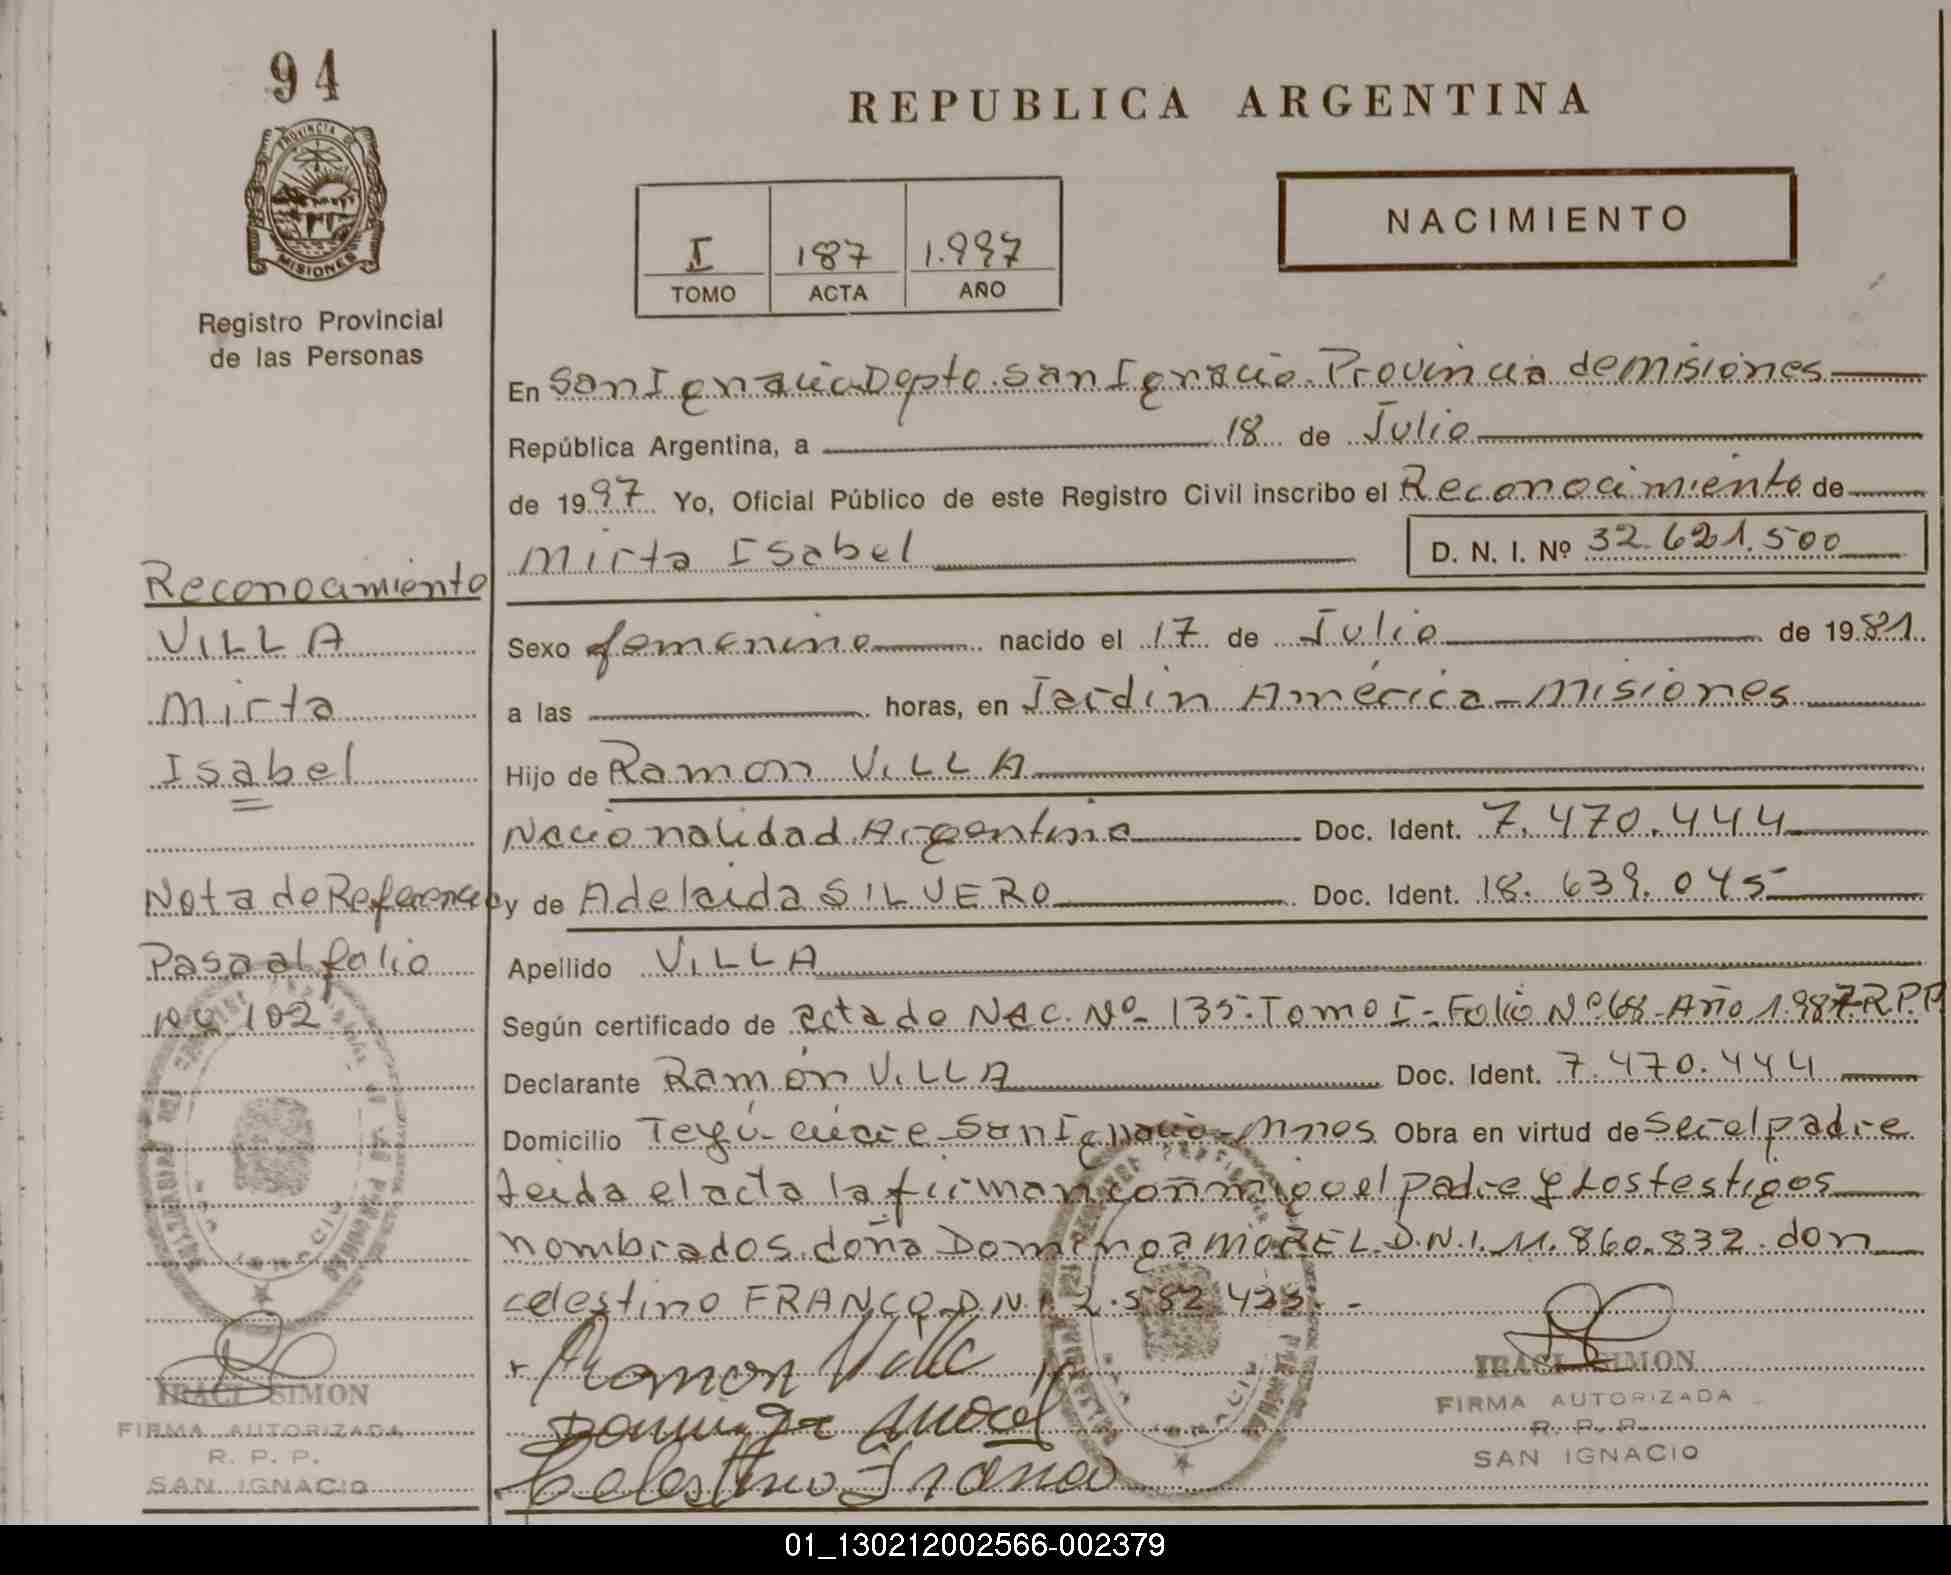 94
REPUBLICA ARGENTINA
PROVINCIA DE
MISIONES
Registro Provincial
de las Personas
I 187 1.997
TOMO ACTA AÑO
NACIMIENTO
En San Ignacio Depto. San Ignacio. Provincia de Misiones
República Argentina, a 18 de Julio
de 1997 Yo, Oficial Público de este Registro Civil inscribo el Reconocimiento de
Mirta Isabel D. N. I. Nº 32.621.500
Sexo femenino nacido el 17 de Julio de 1981
a las horas, en Jardín América - Misiones
Hijo de Ramon VILLA
Nacionalidad Argentina Doc. Ident. 7.470.444
y de Adelaida SILVERO Doc. Ident. 18.639.045
Apellido VILLA
Según certificado de acta de Nac. Nº 135. Tomo I - Folio Nº 68 - Año 1.987 R.P.P
Declarante Ramón VILLA Doc. Ident. 7.470.444
Domicilio Teyú-cuare San Ignacio - Mnes Obra en virtud de ser el padre
leida el acta la firman conmigo el padre y los testigos
nombrados doña Dominga MOREL D.N.I. 11.860.832. don
celestino FRANCO D.N.I 2.582.423. -
Ramon Villa
Dominga Morel
Celestino Franco
IRACI SIMON
FIRMA AUTORIZADA
R. P. P.
SAN IGNACIO
Reconocimiento
VILLA
Mirta
Isabel
Nota de Referencia
Pasa al folio
Nº 102
IRACI SIMON
FIRMA AUTORIZADA
R. P. P.
SAN IGNACIO
01_130212002566-002379